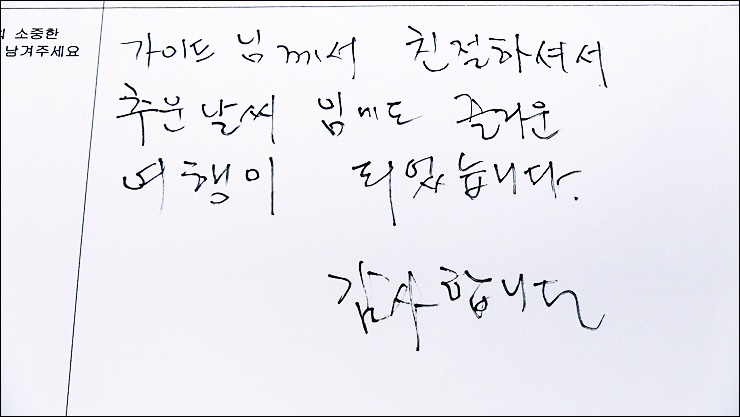 소중한
남겨주세요
가이드 님께서 친절하셔서
추운날씨 임에도 즐거운
여행이 되었습니다.
감사합니다